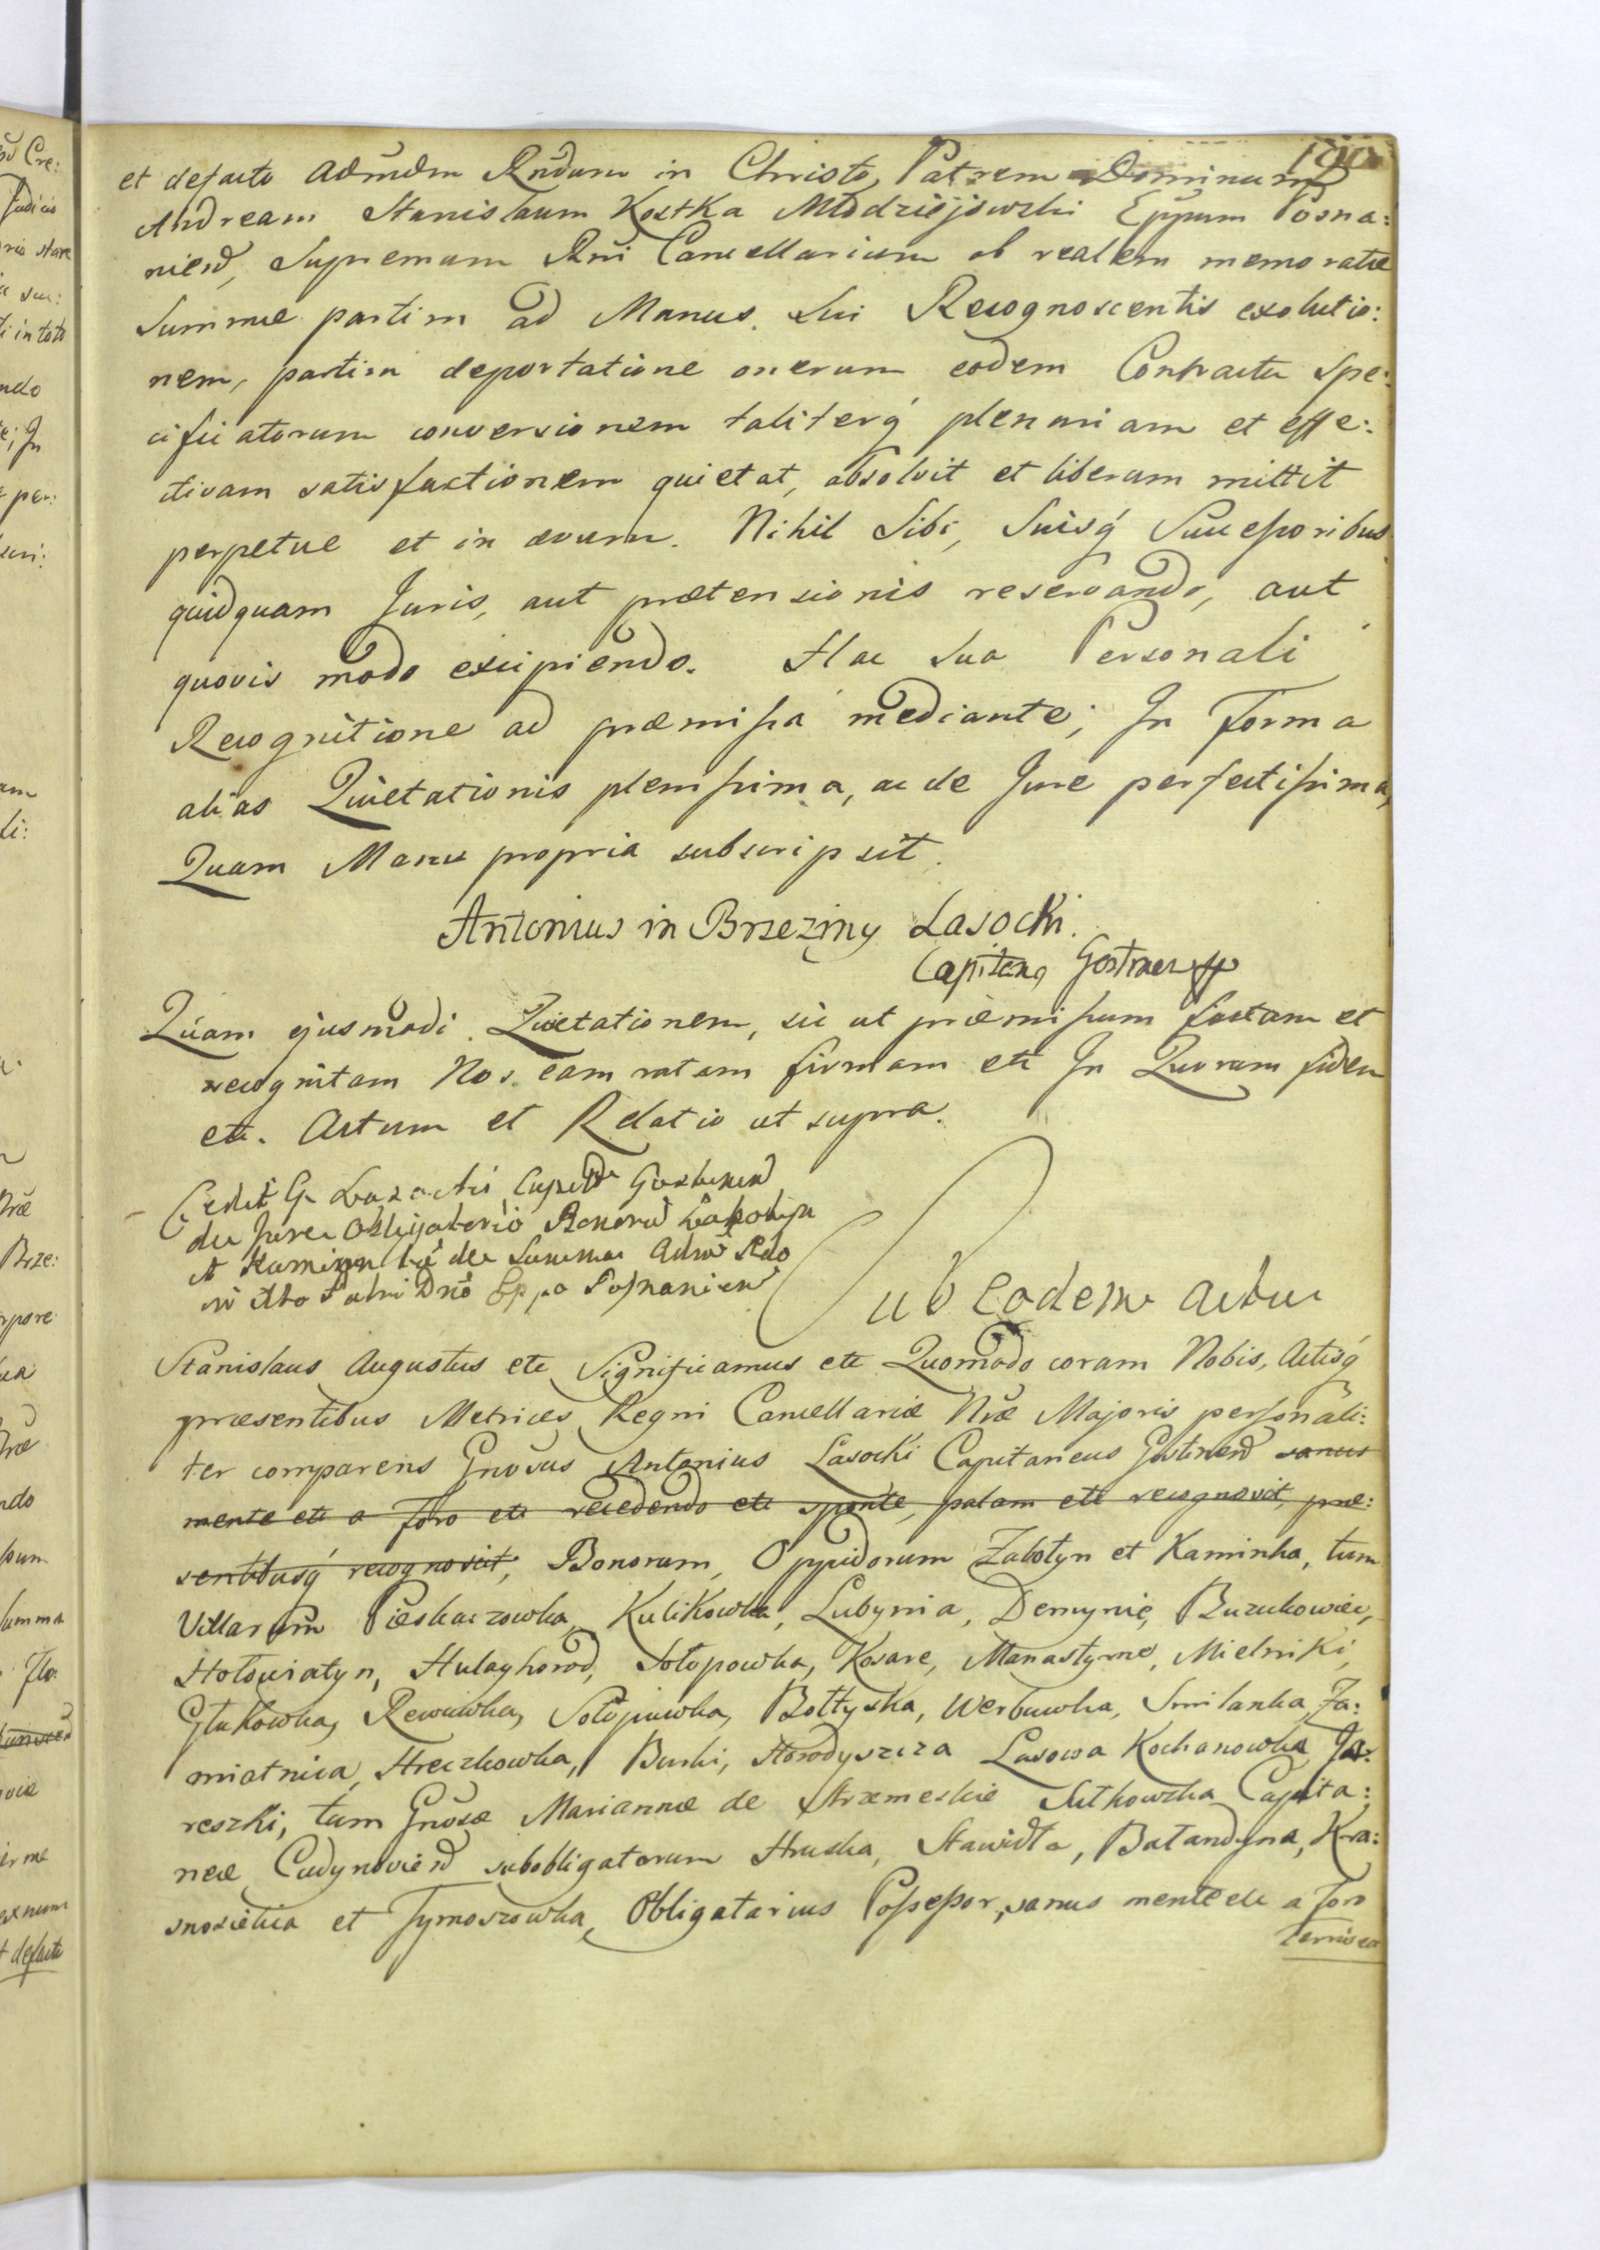 et defacto Admdm Rndum in Christo Patrem Dominum
Andream Stanislaum Kostka Młodziejowski Eppum Posna:
niens, Supremum Rni Cancellarium ob realem memoratæ
Summæ partim ad Manus Sui Recognoscentis exolutio:
nem, partim deportatione onerum eodem Contractu Spe:
cificatorum conversionem taliterq plenariam et effe:
ctivam satisfactionem quietat, absolvit et liberum mittit
perpetue et in ævum. Nihil Sibi, Suisq Successoribus
quidquam Juris, aut prætensionis reservando, aut
quovis modo excipiendo. Hac Sua Personali
Recognitione ad præmissa mediante; In Forma
alias Quietationis plenissima, ac de Jure perfectissima,
Quam Manu propria subscripsit.
Antonius in Brzeziny Lasocki.
Capitan Gostinen
Quam ejusmodi Quietationem, sic ut præmissum factam et
recognitam Nos eam ratam firmam etc In Quorum fidem
etc. Actum et Relatio ut supra.
Cedit G Lasocki Capit Gostinen
de Jure Obligatorio Bonorū Zabotyn
et Kaminka de Summa Adm Rdo
in Xto Patri Dno Eppo Posnanien
Sub Eodem Actu
Stanislaus Augustus etc Significamus etc Quomodo coram Nobis, Actisq
præsentibus Metrices Regni Cancellariæ Nræ Majoris personali:
ter comparens Gnosus Antonius Lasocki Capitaneus Gostinens sanus
mente etc a foro etc recedendo etc sponte, palam etc recognovit, præ:
sentibusq recognoscit, Bonorum, Oppidorum Zabotyn et Kaminka, tum
Villarum Pieskaczowka, Kulikowka, Lubynia, Demynie, Buzukowiec,
Hołowiatyn, Hulayhorod, Sołopowka, Kosare, Manastyrne, Mielniki,
Głukowka, Rewuwka, Sołopiuwka, Bołtyszka, Werbuwka, Smilanka, Za:
miatnica, Hreczkowka, Burki, Horodyszcza Lasowa Kochanowka Ja:
reszki, tum Gnosæ Mariannæ de Strzemeskie Sutkowska Capita:
neæ Cudynoviens subobligatorum Hruska, Stawidła, Bałandyna, Kra:
snosielica et Tymoszowka, Obligatarius Possessor, sanus mente etc a foro